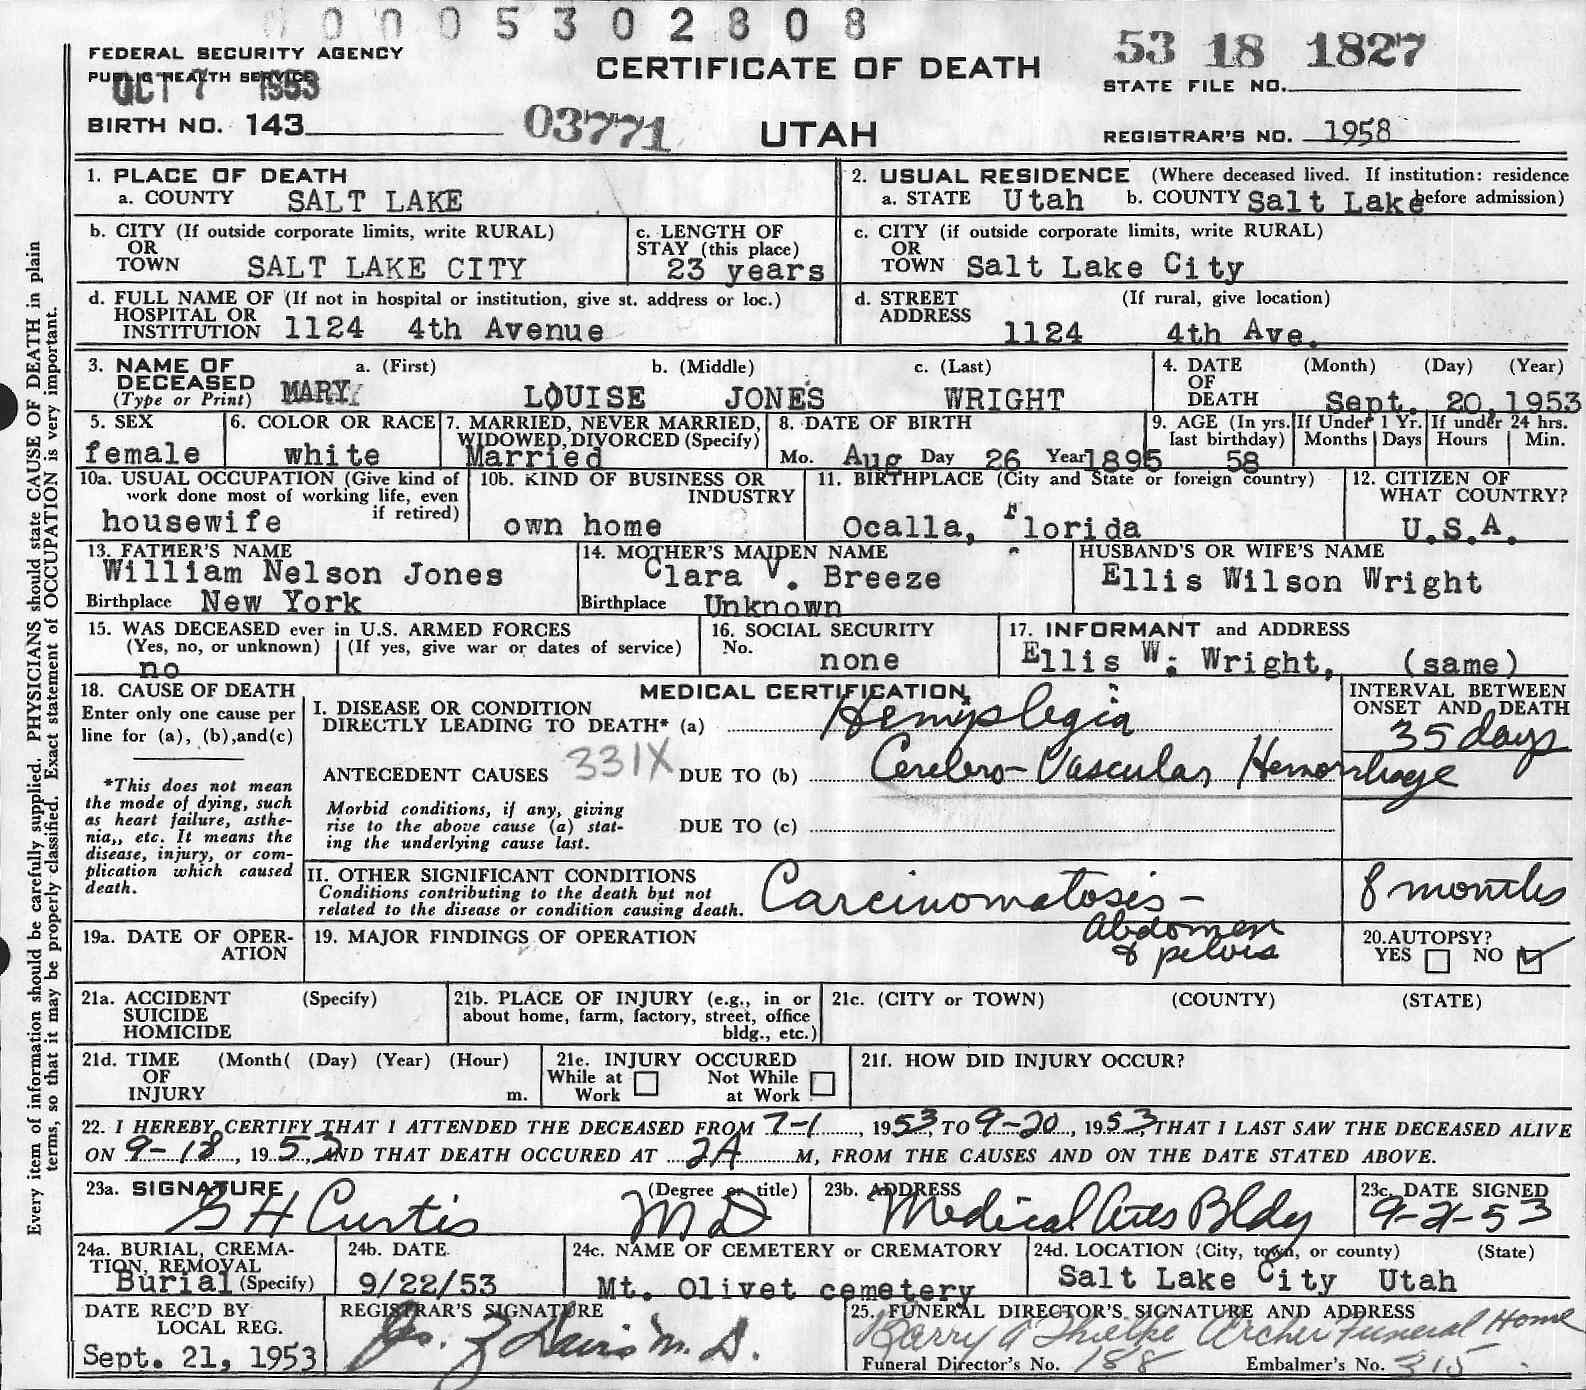 0 0 0 5 3 0 2 8 0 8
FEDERAL SECURITY AGENCY
PUBLIC HEALTH SERVICE
OCT 7 1953
CERTIFICATE OF DEATH
53 18 1827
STATE FILE NO.
BIRTH NO. 143
03771
UTAH
REGISTRAR'S NO. 1958
1. PLACE OF DEATH
a. COUNTY SALT LAKE
2. USUAL RESIDENCE (Where deceased lived. If institution: residence before admission)
a. STATE Utah b. COUNTY Salt Lake
b. CITY (If outside corporate limits, write RURAL)
OR
TOWN SALT LAKE CITY
c. LENGTH OF
STAY (this place)
23 years
c. CITY (if outside corporate limits, write RURAL)
OR
TOWN Salt Lake City
d. FULL NAME OF (If not in hospital or institution, give st. address or loc.)
HOSPITAL OR
INSTITUTION 1124 4th Avenue
d. STREET (If rural, give location)
ADDRESS
1124 4th Ave.
3. NAME OF
DECEASED
(Type or Print)
a. (First) b. (Middle) c. (Last)
MARY LOUISE JONES WRIGHT
4. DATE
OF
DEATH
(Month) (Day) (Year)
Sept. 20, 1953
5. SEX
female
6. COLOR OR RACE
white
7. MARRIED, NEVER MARRIED,
WIDOWED, DIVORCED (Specify)
Married
8. DATE OF BIRTH
Mo. Aug Day 26 Year 1895
9. AGE (In yrs.
last birthday)
58
If Under 1 Yr.
Months Days
If under 24 hrs.
Hours Min.
10a. USUAL OCCUPATION (Give kind of
work done most of working life, even
if retired)
housewife
10b. KIND OF BUSINESS OR
INDUSTRY
own home
11. BIRTHPLACE (City and State or foreign country)
Ocalla, Florida
12. CITIZEN OF
WHAT COUNTRY?
U.S.A.
13. FATHER'S NAME
William Nelson Jones
Birthplace New York
14. MOTHER'S MAIDEN NAME
Clara V. Breeze
Birthplace Unknown
HUSBAND'S OR WIFE'S NAME
Ellis Wilson Wright
15. WAS DECEASED ever in U.S. ARMED FORCES
(Yes, no, or unknown) (If yes, give war or dates of service)
no
16. SOCIAL SECURITY
No.
none
17. INFORMANT and ADDRESS
Ellis W. Wright, (same)
18. CAUSE OF DEATH
Enter only one cause per
line for (a), (b),and(c)
*This does not mean
the mode of dying, such
as heart failure, asthe-
nia,, etc. It means the
disease, injury, or com-
plication which caused
death.
MEDICAL CERTIFICATION
I. DISEASE OR CONDITION
DIRECTLY LEADING TO DEATH* (a) Hemiplegia
ANTECEDENT CAUSES 331X DUE TO (b) Cerebro-Vascular Hemorrhage
Morbid conditions, if any, giving
rise to the above cause (a) stat-
ing the underlying cause last.
DUE TO (c)
INTERVAL BETWEEN
ONSET AND DEATH
35 days
II. OTHER SIGNIFICANT CONDITIONS
Conditions contributing to the death but not
related to the disease or condition causing death.
Carcinomatosis -
Abdomen
& pelvis
8 months
19a. DATE OF OPER-
ATION
19. MAJOR FINDINGS OF OPERATION
20. AUTOPSY?
YES NO
21a. ACCIDENT (Specify)
SUICIDE
HOMICIDE
21b. PLACE OF INJURY (e.g., in or
about home, farm, factory, street, office
bldg., etc.)
21c. (CITY or TOWN) (COUNTY) (STATE)
21d. TIME (Month( (Day) (Year) (Hour)
OF
INJURY m.
21e. INJURY OCCURED
While at Work Not While at Work
21f. HOW DID INJURY OCCUR?
22. I HEREBY CERTIFY THAT I ATTENDED THE DECEASED FROM 7-1, 1953, TO 9-20, 1953, THAT I LAST SAW THE DECEASED ALIVE
ON 9-18, 1953 AND THAT DEATH OCCURED AT 2A M, FROM THE CAUSES AND ON THE DATE STATED ABOVE.
23a. SIGNATURE (Degree or title)
G H Curtis MD
23b. ADDRESS
Medical Arts Bldg
23c. DATE SIGNED
9-21-53
24a. BURIAL, CREMA-
TION, REMOVAL
Burial (Specify)
24b. DATE
9/22/53
24c. NAME OF CEMETERY or CREMATORY
Mt. Olivet cemetery
24d. LOCATION (City, town, or county) (State)
Salt Lake City Utah
DATE REC'D BY
LOCAL REG.
Sept. 21, 1953
REGISTRAR'S SIGNATURE
Davis M. D.
25. FUNERAL DIRECTOR'S SIGNATURE AND ADDRESS
Barry A Thielke Archer Funeral Home
Funeral Director's No. 188 Embalmer's No. 315
Every item of information should be carefully supplied. PHYSICIANS should state CAUSE OF DEATH in plain
terms, so that it may be properly classified. Exact statement of OCCUPATION is very important.